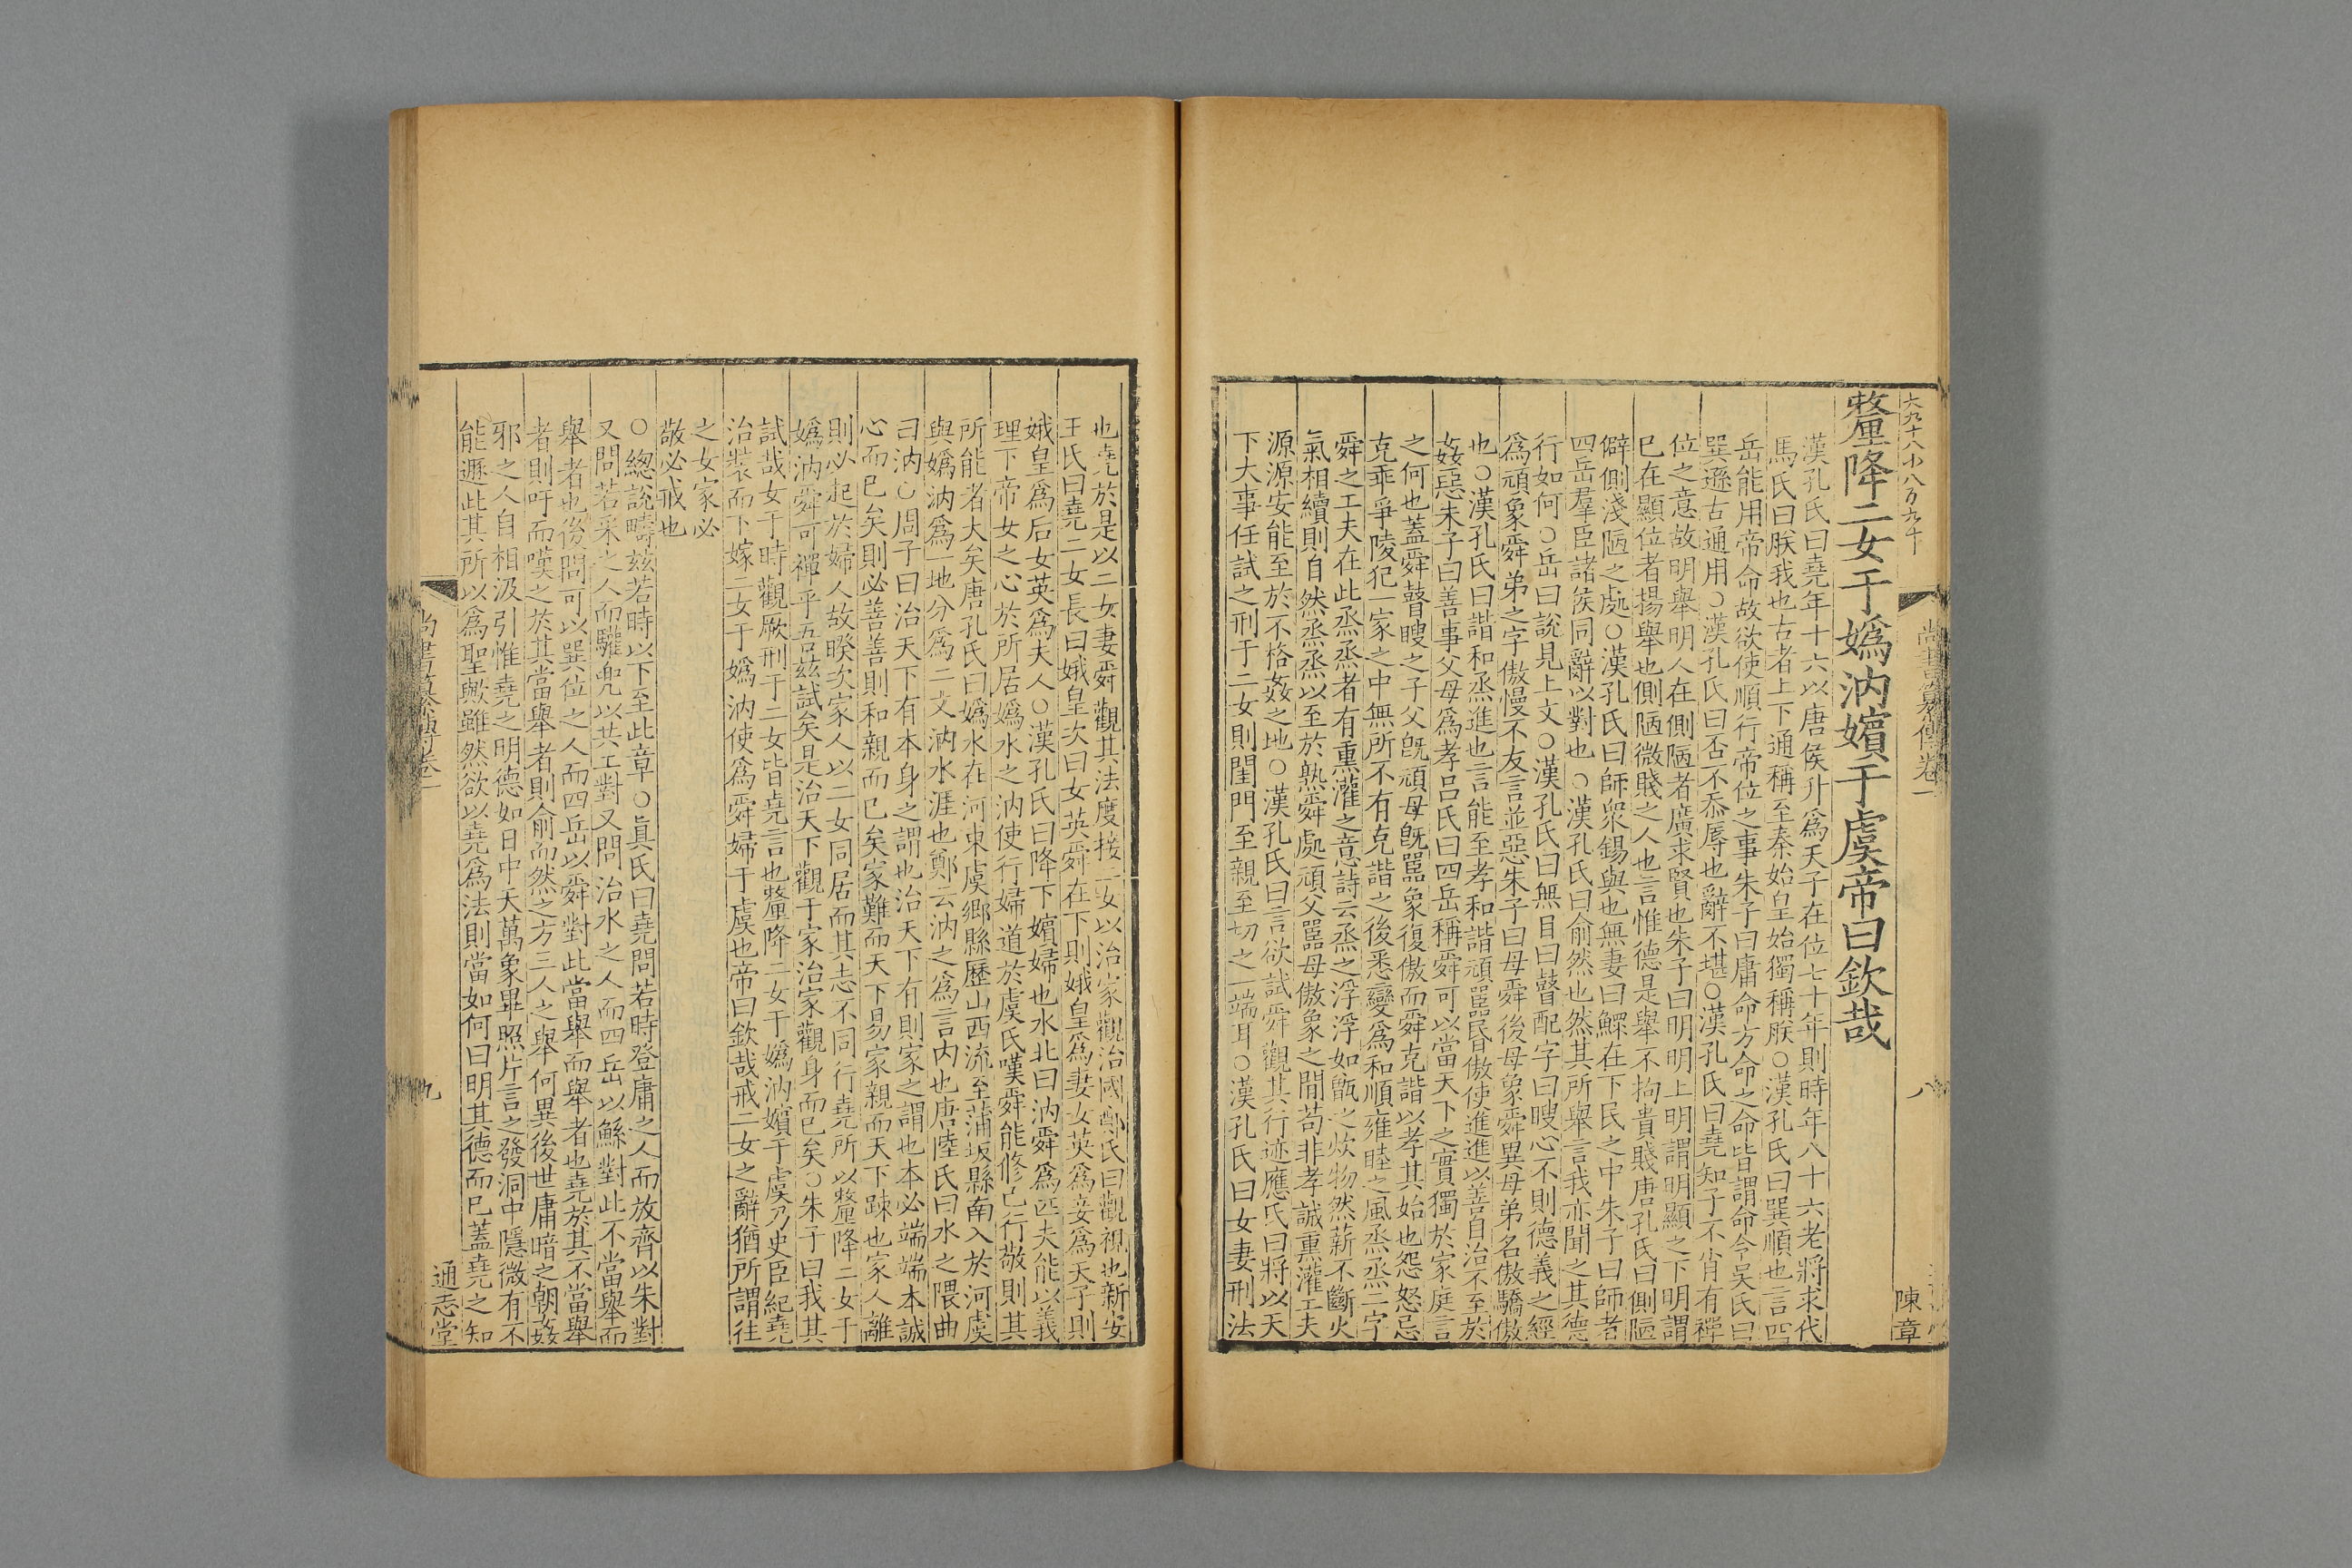 六九十八小八万九千
尚書纂傳卷一
八
陳章
釐降二女于嬀汭嬪于虞帝曰欽哉
漢孔氏曰堯年十六以唐侯升爲天子在位七十年則時年八十六老將求代
馬氏曰朕我也古者上下通稱至秦始皇始獨稱朕○漢孔氏曰巽順也言四
岳能用帝命故欲使順行帝位之事朱子曰庸命方命之命皆謂命令吳氏曰
巽遜古通用○漢孔氏曰否不忝辱也辭不堪○漢孔氏曰堯知子不肖有禪
位之意故明舉明人在側陋者廣求賢也朱子曰明明上明謂明顯之下明謂
巳在顯位者揚舉也側陋微賤之人也言惟德是舉不拘貴賤唐孔氏曰側陋
僻側淺陋之處○漢孔氏曰師衆錫與也無妻曰鰥在下民之中朱子曰師者
四岳羣臣諸侯同辭以對也○漢孔氏曰俞然也然其所舉言我亦聞之其德
行如何○岳曰說見上文○漢孔氏曰無目曰瞽配字曰瞍心不則德義之經
爲頑象舜弟之字傲慢不友言並惡朱子曰母舜後母象舜異母弟名傲驕傲
也○漢孔氏曰諧和烝進也言能至孝和諧頑嚚昏傲使進進以善自治不至於
姦惡朱子曰善事父母爲孝呂氏曰四岳稱舜可以當天下之實獨於家庭言
之何也蓋舜瞽瞍之子父旣頑母旣嚚象復傲而舜克諧以孝其始也怨怒忌
克乖爭陵犯一家之中無所不有克諧之後悉變爲和順雍睦之風烝烝二字
舜之工夫在此烝烝者有熏灌之意詩云烝之浮浮如甑之炊物然薪不斷火
氣相續則自然烝烝以至於熟舜處頑父嚚母傲象之閒苟非孝誠熏灌工夫
源源安能至於不格姦之地○漢孔氏曰言欲試舜觀其行迹應氏曰將以天
下大事任試之刑于二女則閨門至親至切之一端耳○漢孔氏曰女妻刑法
也堯於是以二女妻舜觀其法度接二女以治家觀治國鄭氏曰觀視也新安
王氏曰堯二女長曰娥皇次曰女英舜在下則娥皇爲妻女英爲妾爲天子則
娥皇爲后女英爲夫人○漢孔氏曰降下嬪婦也水北曰汭舜爲匹夫能以義
理下帝女之心於所居嬀水之汭使行婦道於虞氏嘆舜能修己行敬則其
所能者大矣唐孔氏曰嬀水在河東虞鄉縣歷山西流至蒲坂縣南入於河虞
與嬀汭爲一地分爲二文汭水涯也鄭云汭之爲言内也唐陸氏曰水之隈曲
曰汭○周子曰治天下有本身之謂也治天下有則家之謂也本必端端本誠
心而已矣則必善善則和親而已矣家難而天下易家親而天下踈也家人離
則必起於婦人故睽次家人以二女同居而其志不同行堯所以釐降二女于
嬀汭舜可禪乎吾茲試矣是治天下觀于家治家觀身而已矣○朱子曰我其
試哉女于時觀厥刑于二女皆堯言也釐降二女于嬀汭嬪于虞乃史臣紀堯
治裝而下嫁二女于嬀汭使爲舜婦于虞也帝曰欽哉戒二女之辭猶所謂往
之女家必
敬必戒也
○總說疇茲若時以下至此章○眞氏曰堯問若時登庸之人而放齊以朱對
又問若采之人而驩兜以共工對又問治水之人而四岳以鯀對此不當舉而
舉者也後問可以巽位之人而四岳以舜對此當舉而舉者也堯於其不當舉
者則吁而嘆之於其當舉者則俞而然之方三人之舉何異後世庸暗之朝姦
邪之人自相汲引惟堯之明德如日中天萬象畢照片言之發洞中隱微有不
能遯此其所以爲聖歟雖然欲以堯爲法則當如何曰明其德而已蓋堯之知
九
通志堂